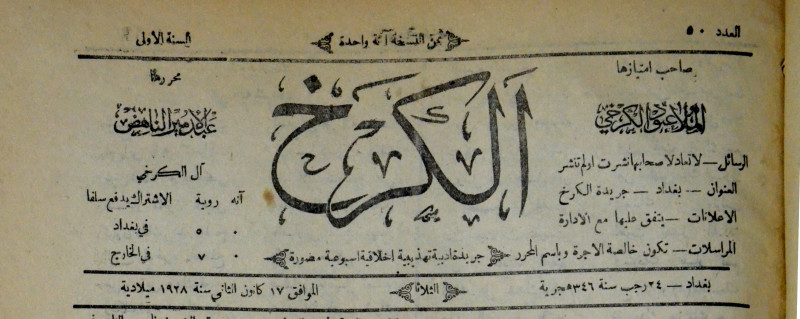 العدد ٥٠
ثمن النسخة آنة واحدة
السنة الاولى
صاحب امتيازها
الملا عبود الكرخي
الكرخ
محررها
عبد الامير الناهض
الرسائل — لا تعاد لاصحابها نشرت او لم تنشر
العنوان — بغداد — جريدة الكرخ
الاعلانات — يتفق عليها مع الادارة
المراسلات — تكون خالصة الاجرة وباسم المحرر
آل الكرخي
آنه روبية الاشتراك يدفع سلفا
٠ ٥ في بغداد
٠ ٧ في الخارج
جريدة ادبية تهذيبية اخلاقية اسبوعية مصورة
بغداد — ٢٤ رجب سنة ١٣٤٦ هجرية
الثلاثا
الموافق ١٧ كانون الثاني سنة ١٩٢٨ ميلادية